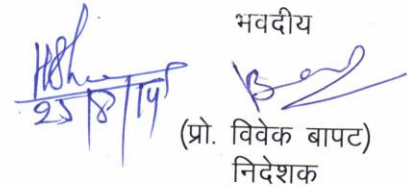 भवदीय
25/8/14
(प्रो. विवेक बापट)
निदेशक